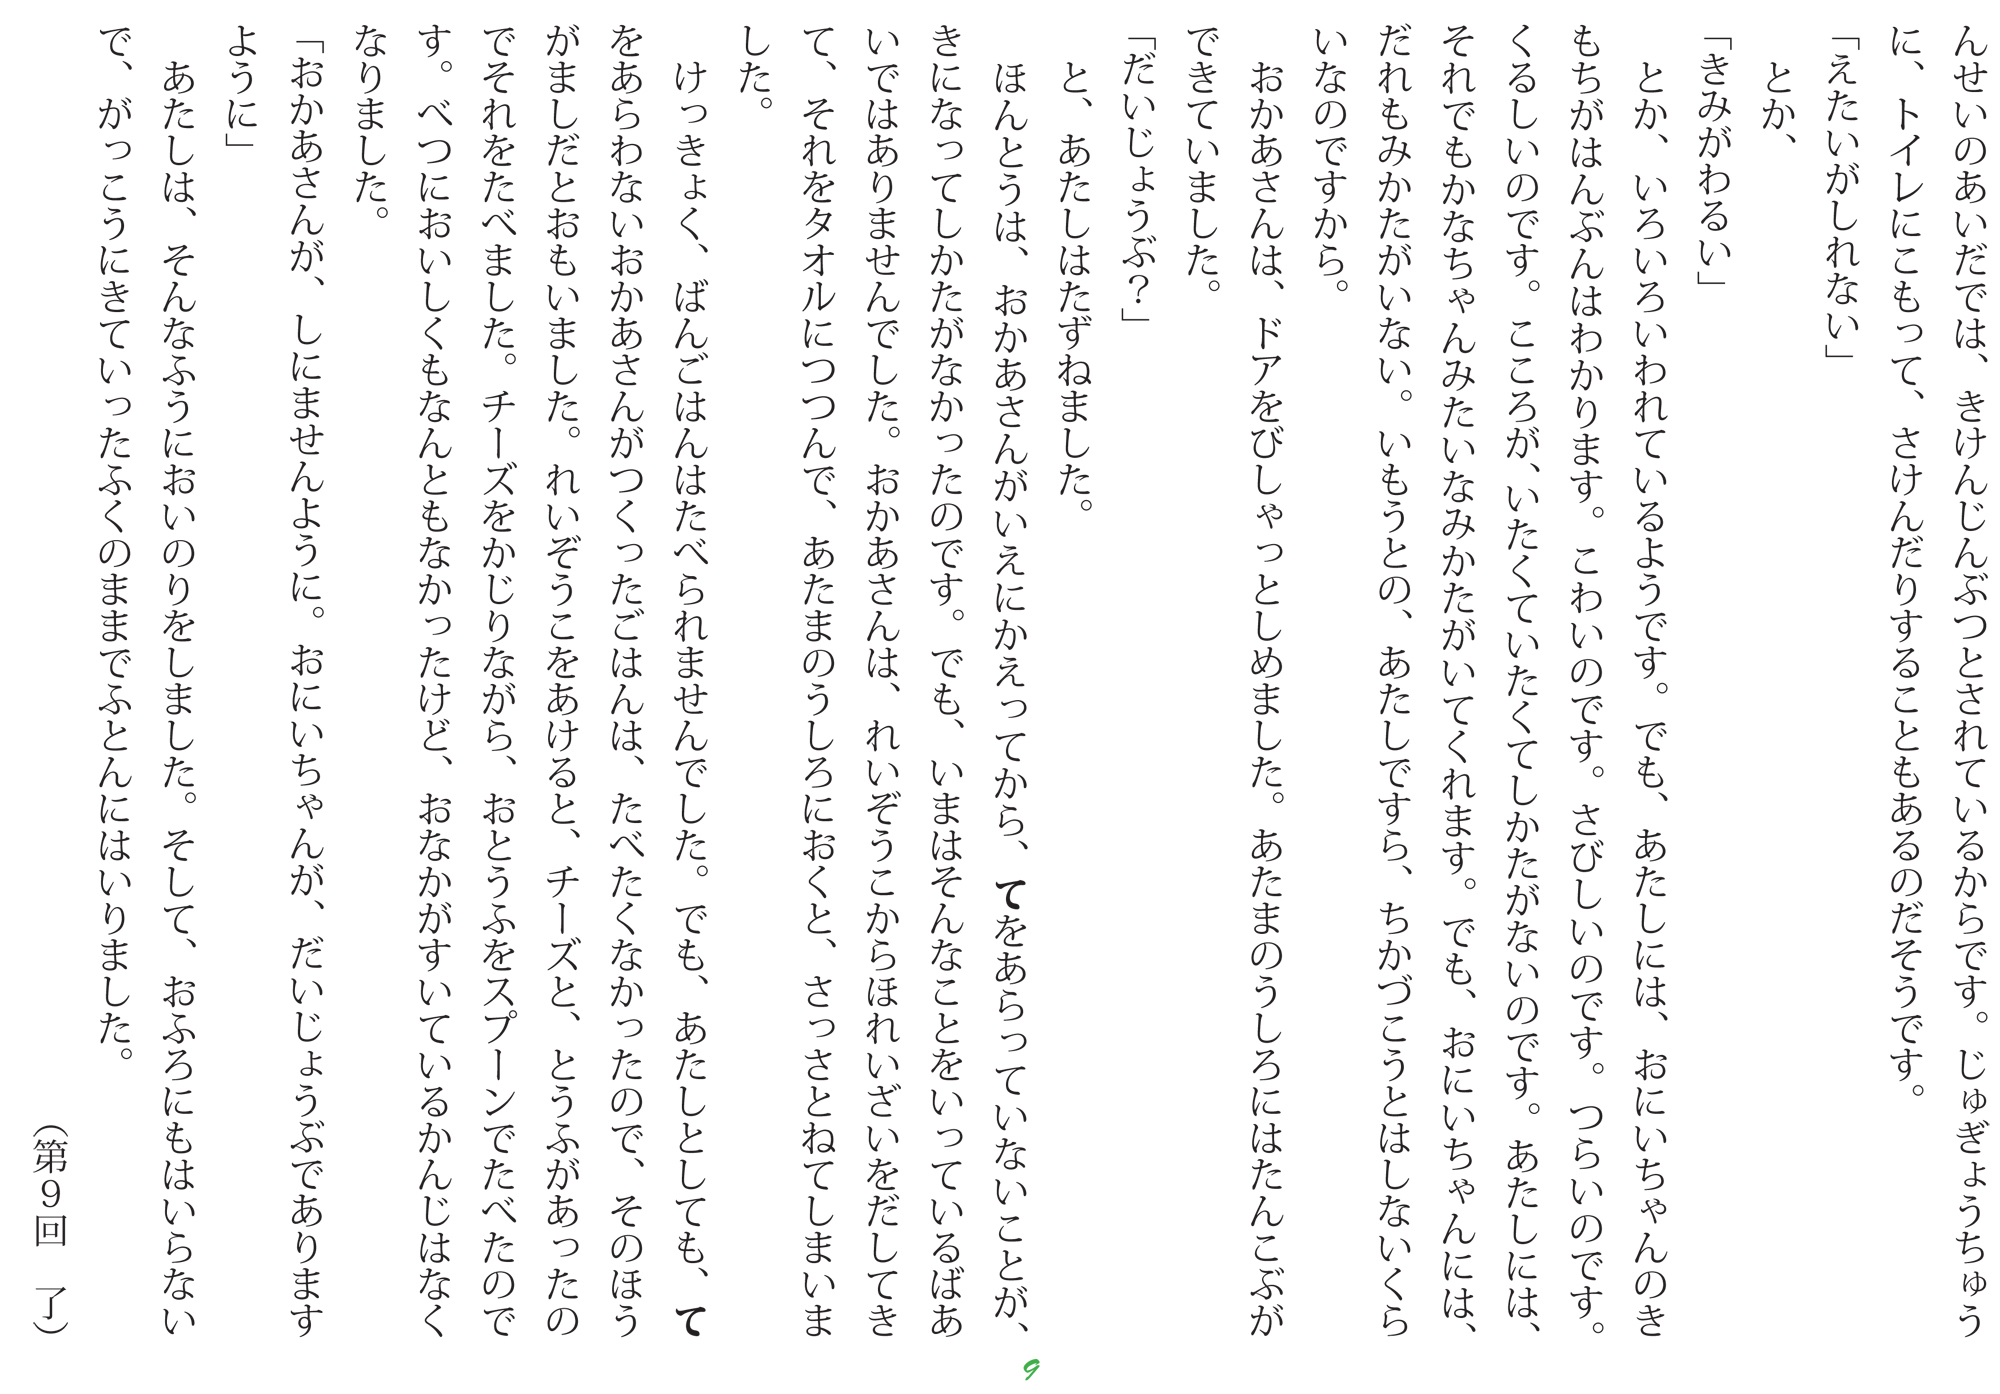 んせいのあいだでは、きけんじんぶつとされているからです。じゅぎょうちゅう
に、トイレにこもって、さけんだりすることもあるのだそうです。
「えたいがしれない」
　とか、
「きみがわるい」
　とか、いろいろいわれているようです。でも、あたしには、おにいちゃんのき
もちがはんぶんはわかります。こわいのです。さびしいのです。つらいのです。
くるしいのです。こころが、いたくていたくてしかたがないのです。あたしには、
それでもかなちゃんみたいなみかたがいてくれます。でも、おにいちゃんには、
だれもみかたがいない。いもうとの、あたしですら、ちかづこうとはしないくら
いなのですから。
　おかあさんは、ドアをびしゃっとしめました。あたまのうしろにはたんこぶが
できていました。
「だいじょうぶ？」
　と、あたしはたずねました。
　ほんとうは、おかあさんがいえにかえってから、てをあらっていないことが、
きになってしかたがなかったのです。でも、いまはそんなことをいっているばあ
いではありませんでした。おかあさんは、れいぞうこからほれいざいをだしてき
て、それをタオルにつつんで、あたまのうしろにおくと、さっさとねてしまいま
した。
　けっきょく、ばんごはんはたべられませんでした。でも、あたしとしても、て
をあらわないおかあさんがつくったごはんは、たべたくなかったので、そのほう
がましだとおもいました。れいぞうこをあけると、チーズと、とうふがあったの
でそれをたべました。チーズをかじりながら、おとうふをスプーンでたべたので
す。べつにおいしくもなんともなかったけど、おなかがすいているかんじはなく
なりました。
「おかあさんが、しにませんように。おにいちゃんが、だいじょうぶであります
ように」
　あたしは、そんなふうにおいのりをしました。そして、おふろにもはいらない
で、がっこうにきていったふくのままでふとんにはいりました。
（第９回　了）
9